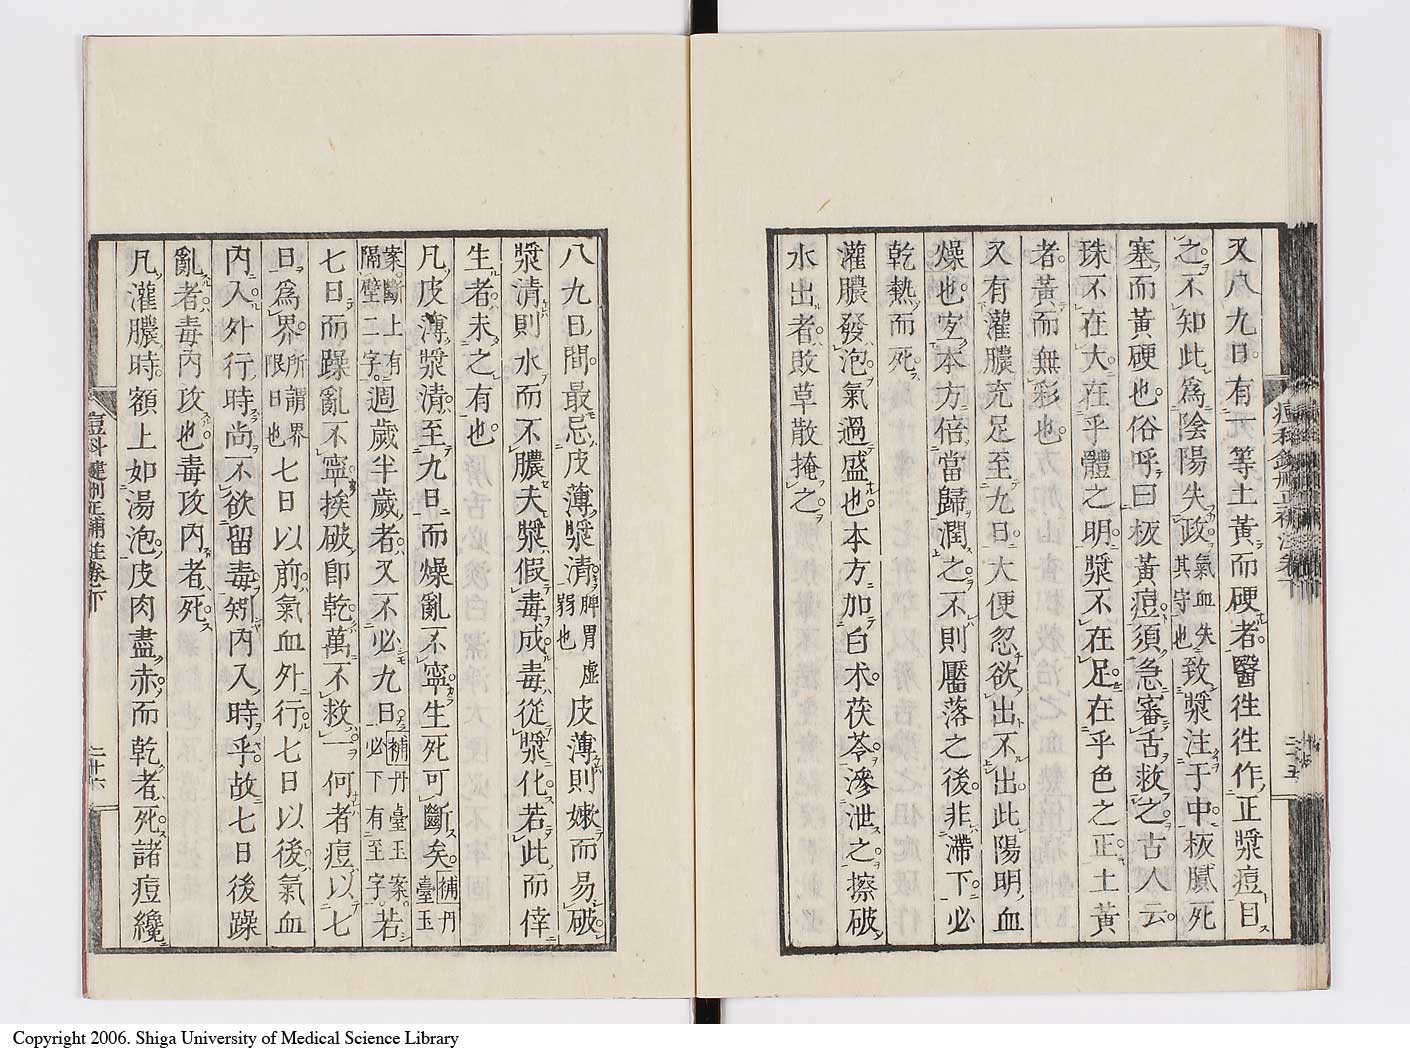 又八九日有一等土黄而硬者醫徃徃作正漿痘目
之不知此為陰陽失政氣血失其守也致漿注于中板膩死
塞而黃硬也俗呼曰板黃痘須急審舌救之古人云
珠不在大在乎體之明漿不在足在乎色之正土黃
者黃而無彩也
又有灌膿充足至九日大便忽欲出不出此陽明血
燥也定本方倍當歸潤之不則靨落之後非滯下必
乾熱而死
灌膿發泡氣過盛也本方加白朮茯苓滲泄之擦破
水出者敗草散掩之
八九日間最忌皮薄漿清脾胃虛弱也皮薄則嫩而易破
漿清則水而不膿夫漿假毒成毒從漿化若此而倖
生者未之有也
凡皮薄漿清至九日而燥亂不寧生死可斷矣補丹臺玉
案斷上有隔壁二字週歲半歲者又不必九日補丹臺玉案必下有至字若
七日而躁亂不寧挨破即乾萬不救一何者痘以七
日為界所謂界限日也七日以前氣血外行七日以後氣血
內入外行時尚不欲留毒矧內入時乎故七日後躁
亂者毒內攻也毒攻內者死
凡灌膿時額上如湯泡皮肉盡赤而乾者死諸痘纔
痘科鍵刪正補註卷下
二十六
Copyright 2006. Shiga University of Medical Science Library